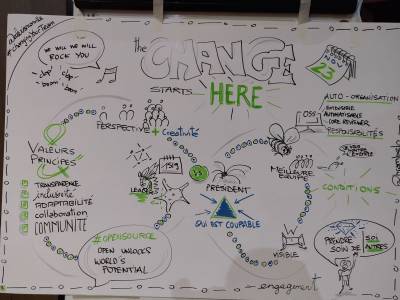 the CHANGE
STARTS HERE
23
WE WILL WE WILL
ROCK YOU
PERSPECTIVE
+ Créativité
AUTO-ORGANISATION
EXTENSIBLE
AUTOMATISABLE
CORE REVIEWER
RESPONSABILITÉS
OSS
VALEURS
PRINCIPES
TRANSPARENCE
inclusivité
ADAPTABILITÉ
collaboration
COMMUNITÉ
LEADER
VS
PRÉSIDENT
QUI EST COUPABLE
MEILLEURE
ÉQUIPE
CONDITIONS
#OPENSOURCE
OPEN UNLOCKS
WORLD'S
POTENTIAL
VISIBLE
engagement
PRENDRE
SOIN DE
SOI
AUTRES